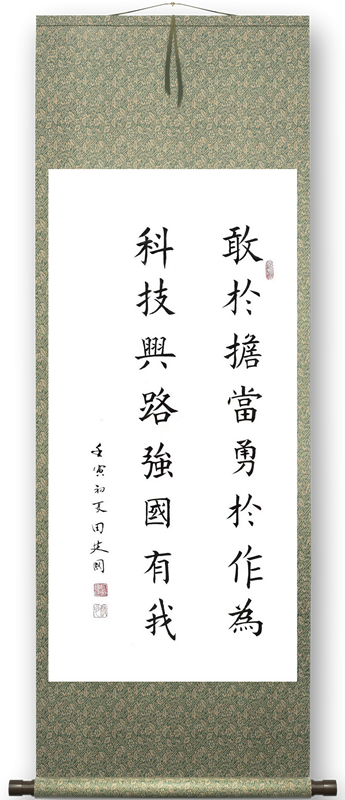 敢於擔當勇於作為
科技興路強國有我
壬寅初夏田建国